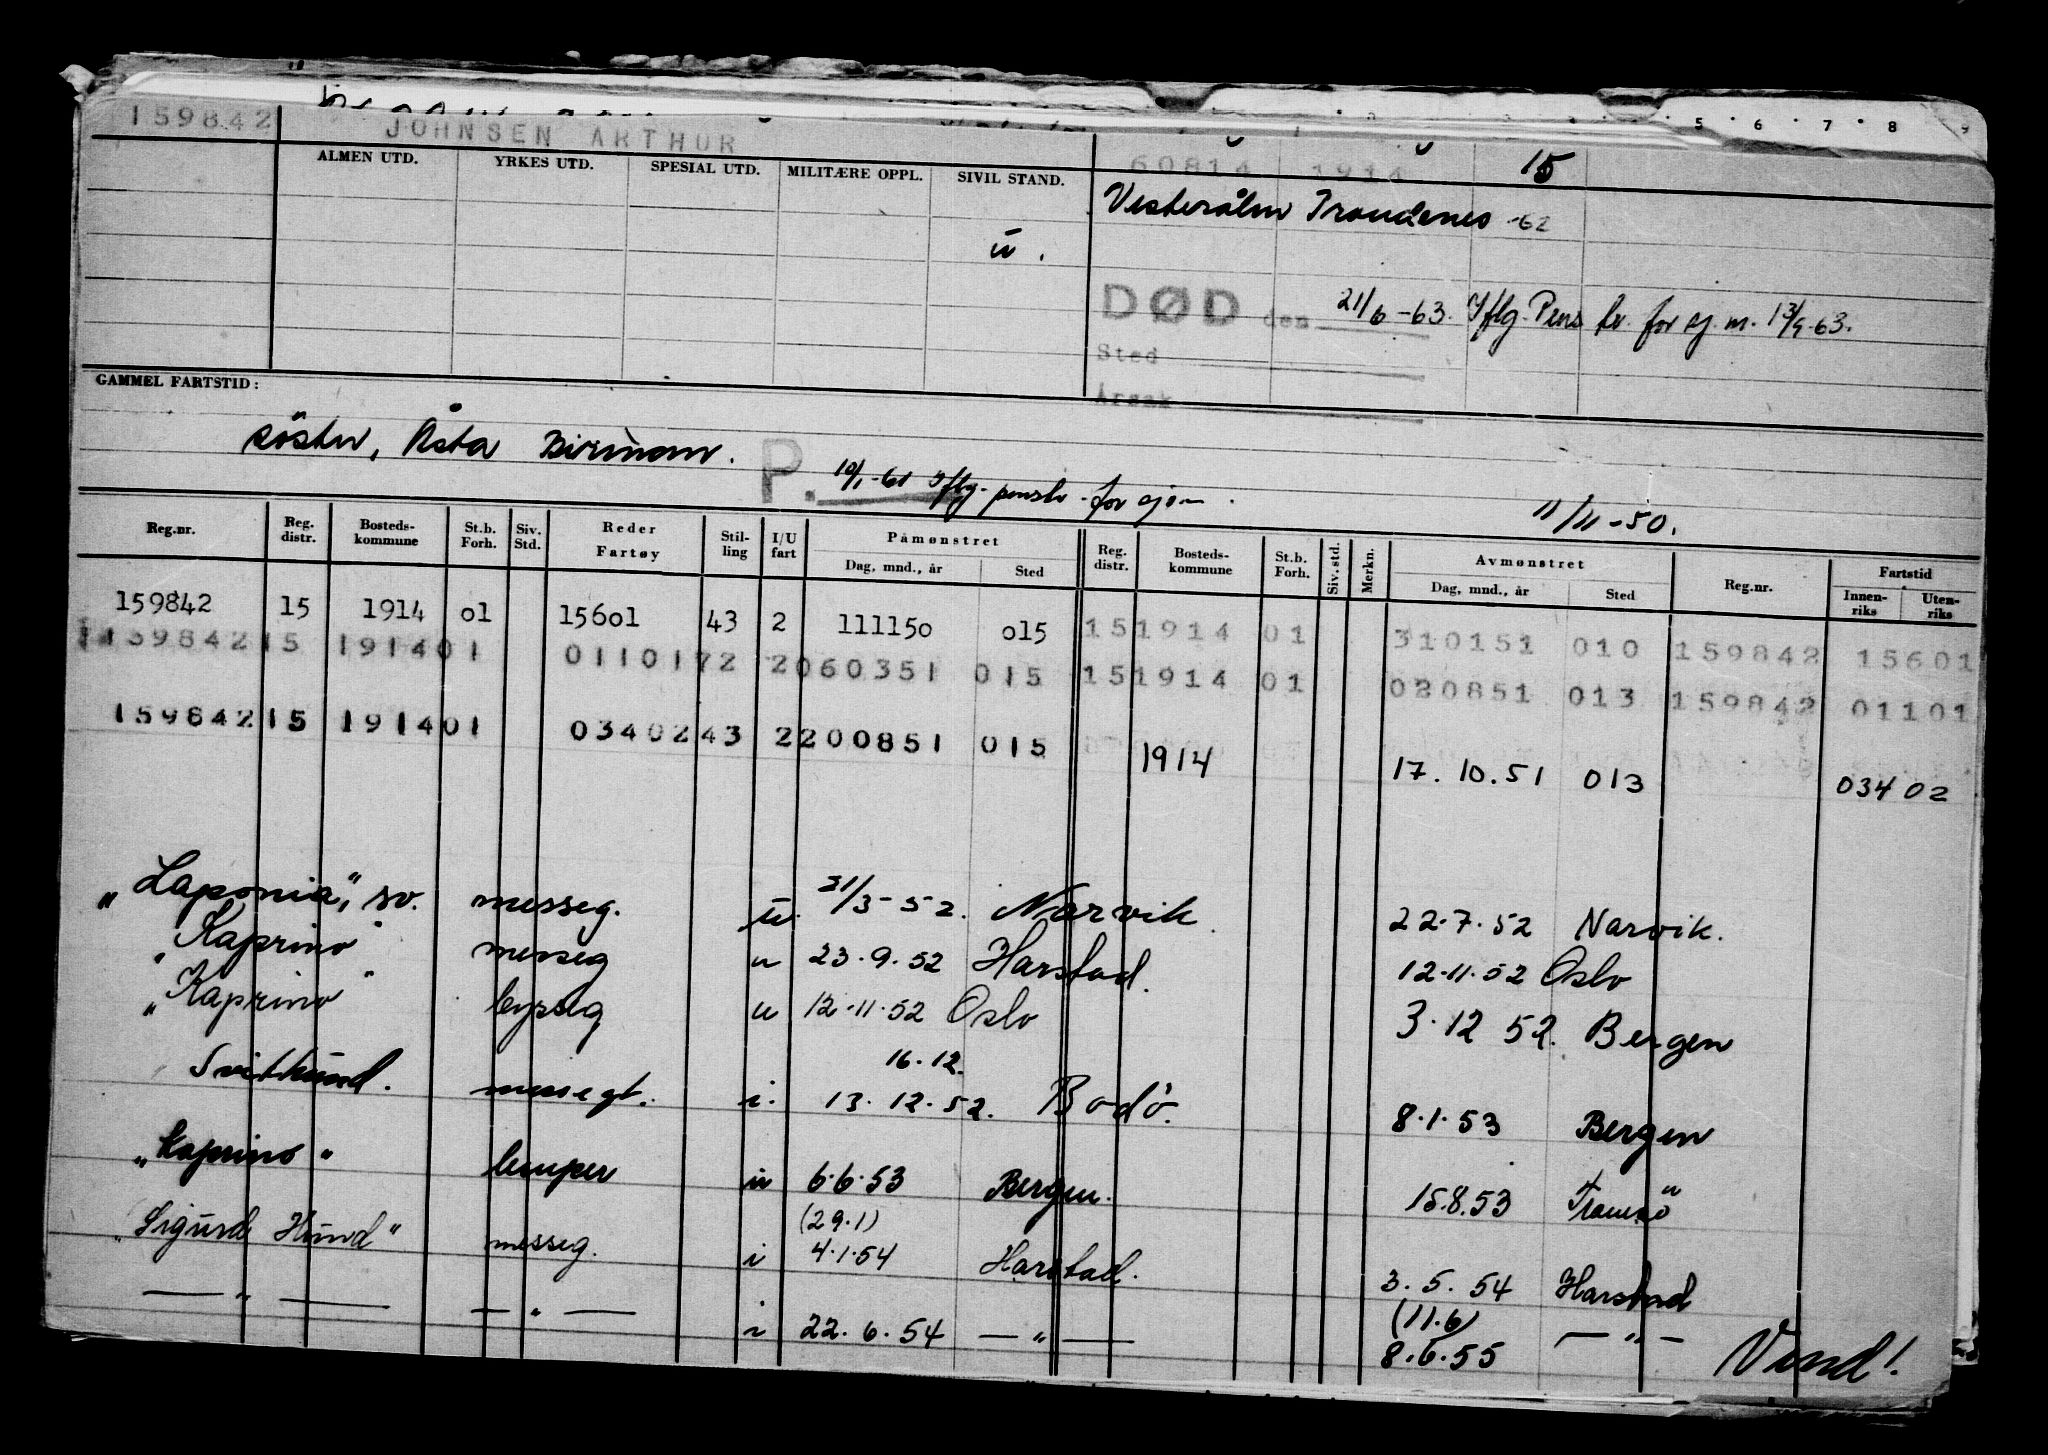 5 6 7 8 9
159842 JOHNSEN ARTHUR 60814 1914 15
ALMEN UTD. YRKES UTD. SPESIAL UTD. MILITÆRE OPPL. SIVIL STAND.
Vesterålen Trondenes -62
u.
DØD den 21/6-63. Iflg. Pens tr. for sj. m. 13/9-63.
Sted
Årsak
GAMMEL FARTSTID:
söster, Åsta Birman.
P. 10/1-61 Iflg. penstr. for sjøm.
11/11-50.
Reg.nr. Reg. distr. Bosteds-kommune St.b. Forh. Siv. Std. Reder Fartøy Stil-ling I/U fart Påmønstret Dag, mnd., år Sted Reg. distr. Bosteds-kommune St.b. Forh. Siv. std. Merkn. Avmønstret Dag, mnd., år Sted Reg.nr. Fartstid Innen-riks Uten-riks
159842 15 1914 o1 156o1 43 2 11115o o15 15 1914 01 310151 010 159842 15601
159842 15 1914 01 01101 72 2 060351 015 15 1914 01 020851 013 159842 01101
159842 15 1914 01 03402 43 2 200851 015 1914 17.10.51 013 03402
"Laponia", sv. messeg. u. 31/3-52. Narvik 22.7.52 Narvik.
"Kaprino" messeg u 23.9.52 Harstad. 12.11.52 Oslo
"Kaprino" bysseg u 12.11.52 Oslo 3.12 52. Bergen
16.12.
Svithund. messegt. i. 13.12.52. Bodö. 8.1.53 Bergen
"Kaprino" lemper u 6.6.53 Bergen. 15.8.53 Tromsö
(29.1)
"Sigurd Hund" messeg. i 4.1.54 Harstad. 3.5.54 Harstad
(11.6)
— " — — " — i 22.6.54 — " — 8.6.55 — " —
Vend!